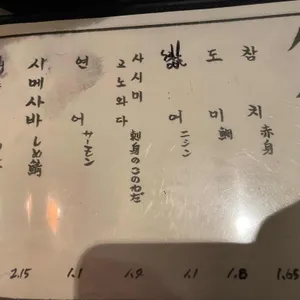 참치 赤身 1.65
도미 鯛 1.8
어 ニシン 1.1
사시미 고노와다 刺身のこのわだ 1.9
연어 サーモン 1.1
시메사바 しめ鯖 2.15